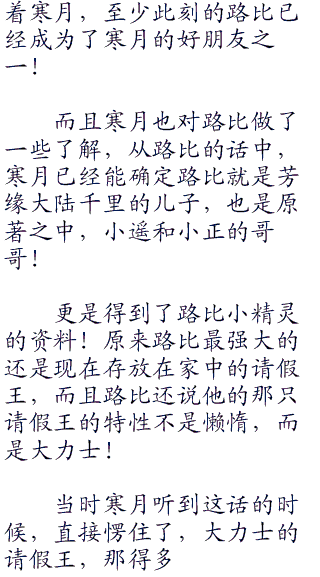 着寒月，至少此刻的路比已
经成为了寒月的好朋友之
一！
而且寒月也对路比做了
一些了解，从路比的话中，
寒月已经能确定路比就是芳
缘大陆千里的儿子，也是原
著之中，小遥和小正的哥
哥！
更是得到了路比小精灵
的资料！原来路比最强大的
还是现在存放在家中的请假
王，而且路比还说他的那只
请假王的特性不是懒惰，而
是大力士！
当时寒月听到这话的时
候，直接愣住了，大力士的
请假王，那得多